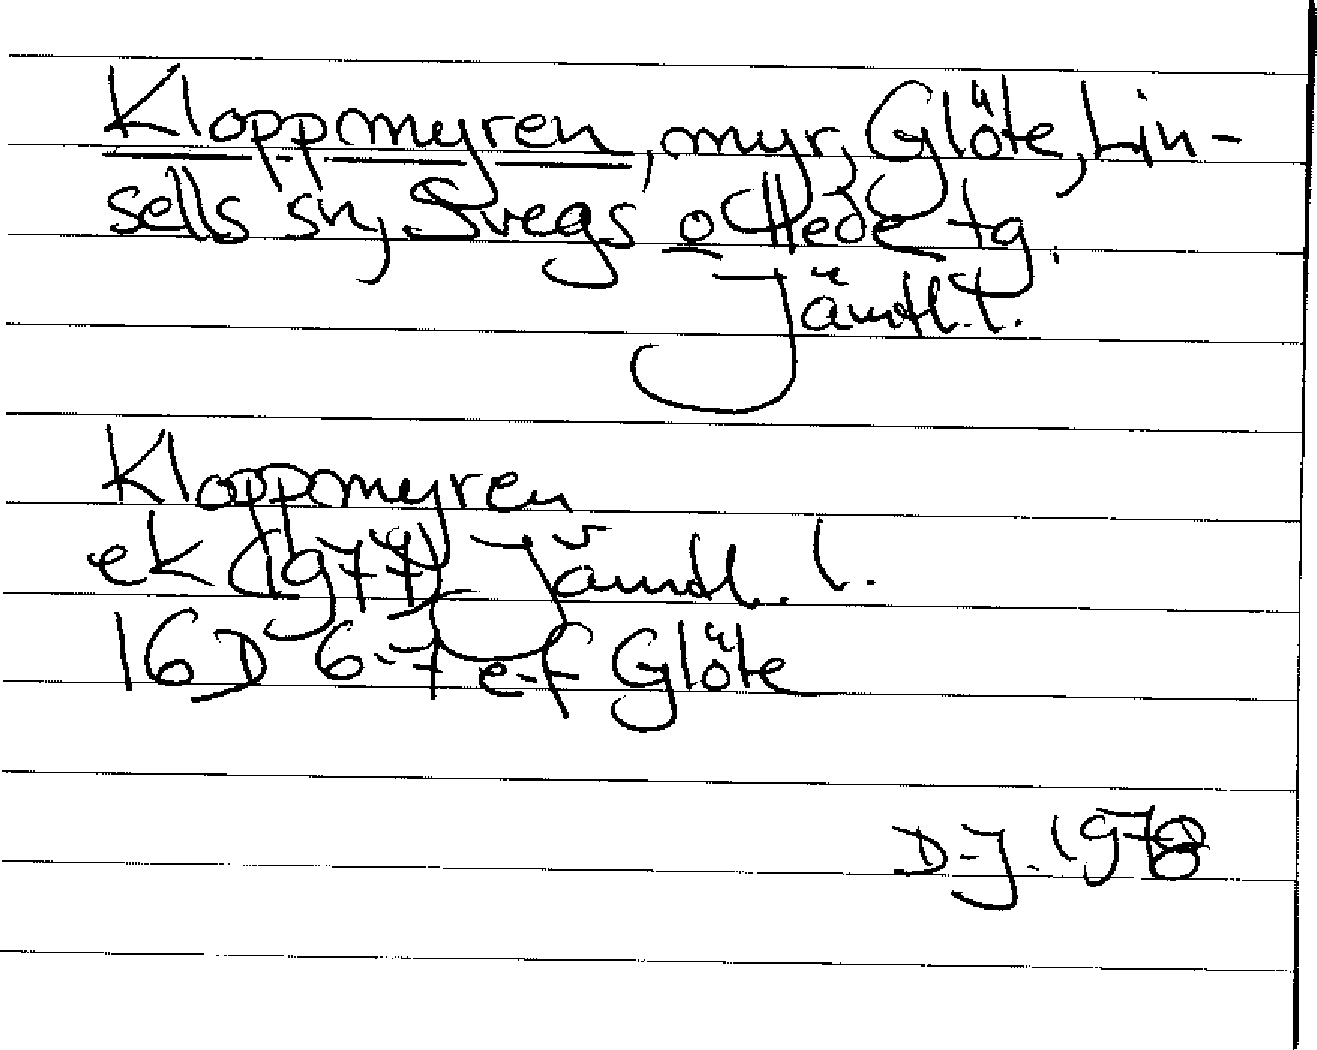 Kloppmyren, myr, Glöte, Lin-
sells sn, Svegs o Hede tg.
Jämtl. l.
Kloppmyren
ek (1977) Jämtl. l.
16D 6-7 e-f Glöte
D-J. 1978